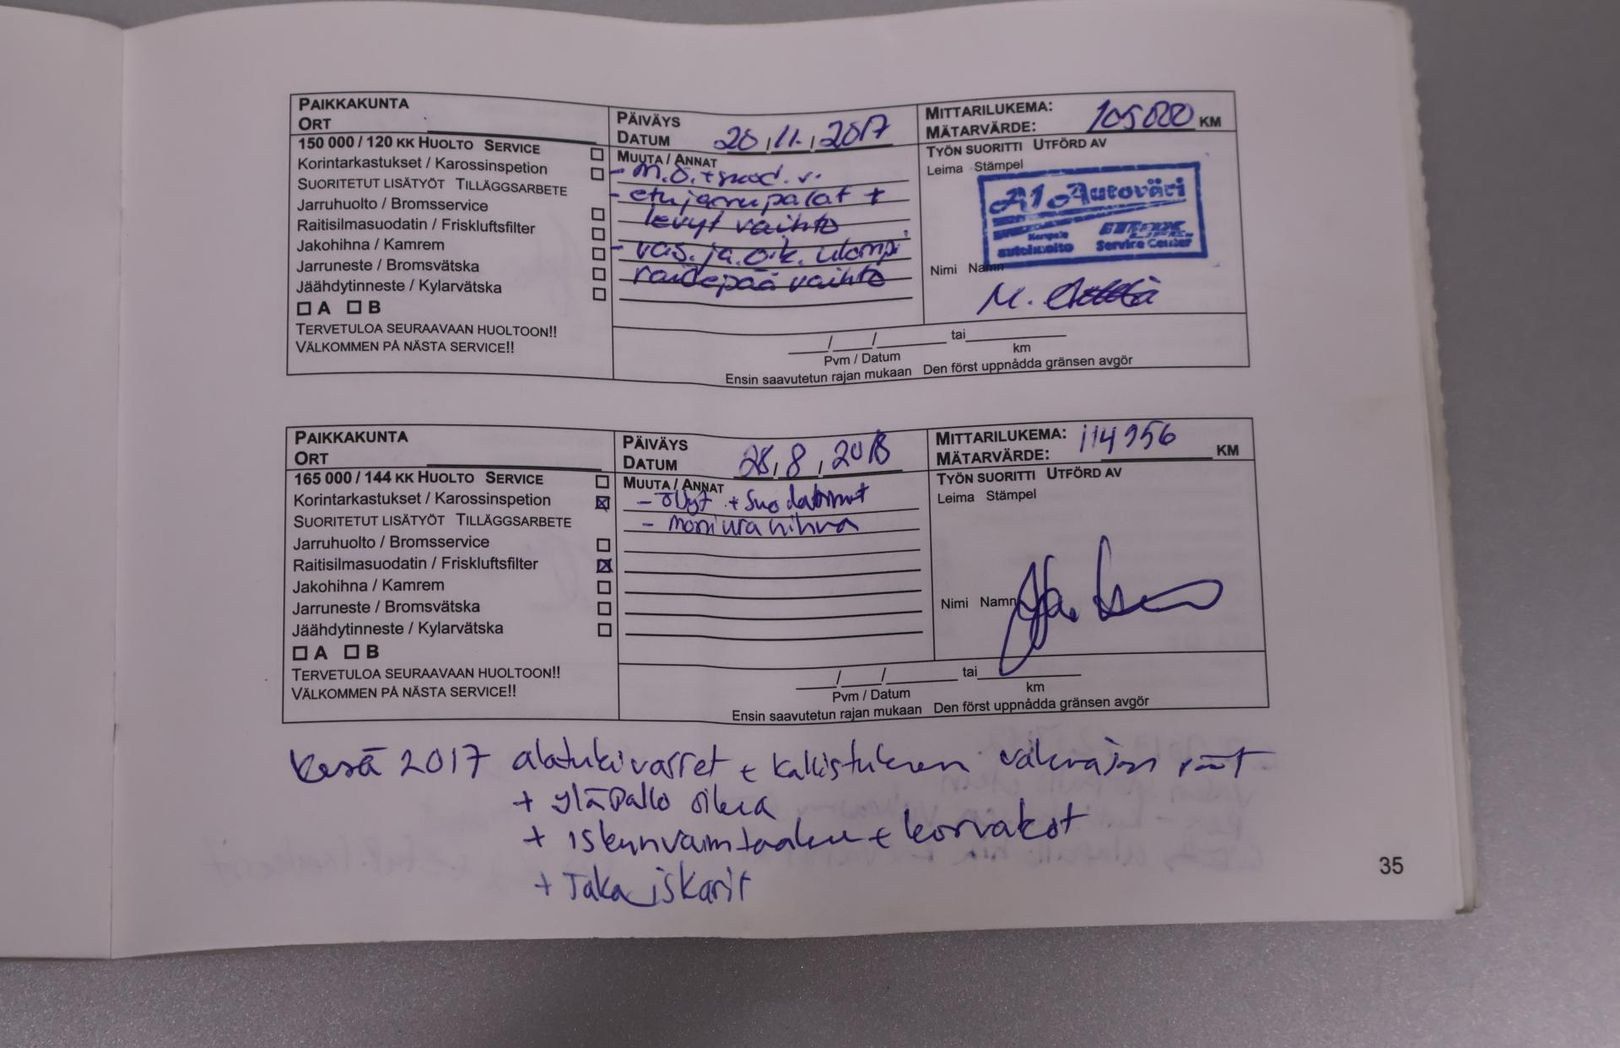 PAIKKAKUNTA
ORT
PÄIVÄYS
DATUM 20.11.2017
MITTARILUKEMA:
MÄTARVÄRDE: 105000 KM
150 000 / 120 KK HUOLTO SERVICE
Korintarkastukset / Karossinspetion
SUORITETUT LISÄTYÖT TILLÄGGSARBETE
Jarruhuolto / Bromsservice
Raitisilmasuodatin / Friskluftsfilter
Jakohihna / Kamrem
Jarruneste / Bromsvätska
Jäähdytinneste / Kylarvätska
A B
TERVETULOA SEURAAVAAN HUOLTOON!!
VÄLKOMMEN PÅ NÄSTA SERVICE!!
MUUTA / ANNAT
- M.Ö. + suod. v.
- etujarrupalat +
levyt vaihto
- vas. ja oik. ulompi
raidepää vaihto
TYÖN SUORITTI UTFÖRD AV
Leima Stämpel
A1 Autoväri
Kempele
autohuolto Service Center
Nimi Namn
M.
/ / tai
Pvm / Datum km
Ensin saavutetun rajan mukaan Den först uppnådda gränsen avgör
PAIKKAKUNTA
ORT
PÄIVÄYS
DATUM 28,8,2018
MITTARILUKEMA: 114956
MÄTARVÄRDE: KM
165 000 / 144 KK HUOLTO SERVICE
Korintarkastukset / Karossinspetion
SUORITETUT LISÄTYÖT TILLÄGGSARBETE
Jarruhuolto / Bromsservice
Raitisilmasuodatin / Friskluftsfilter
Jakohihna / Kamrem
Jarruneste / Bromsvätska
Jäähdytinneste / Kylarvätska
A B
TERVETULOA SEURAAVAAN HUOLTOON!!
VÄLKOMMEN PÅ NÄSTA SERVICE!!
MUUTA / ANNAT
- öljyt + suodattimet
- moniurahihna
TYÖN SUORITTI UTFÖRD AV
Leima Stämpel
Nimi Namn
/ / tai
Pvm / Datum km
Ensin saavutetun rajan mukaan Den först uppnådda gränsen avgör
Kesä 2017 alatukivarret + kallistuksen
+ yläpallo oikea
+ iskunvaimtaaken + korvakot
+ Taka iskarit
35